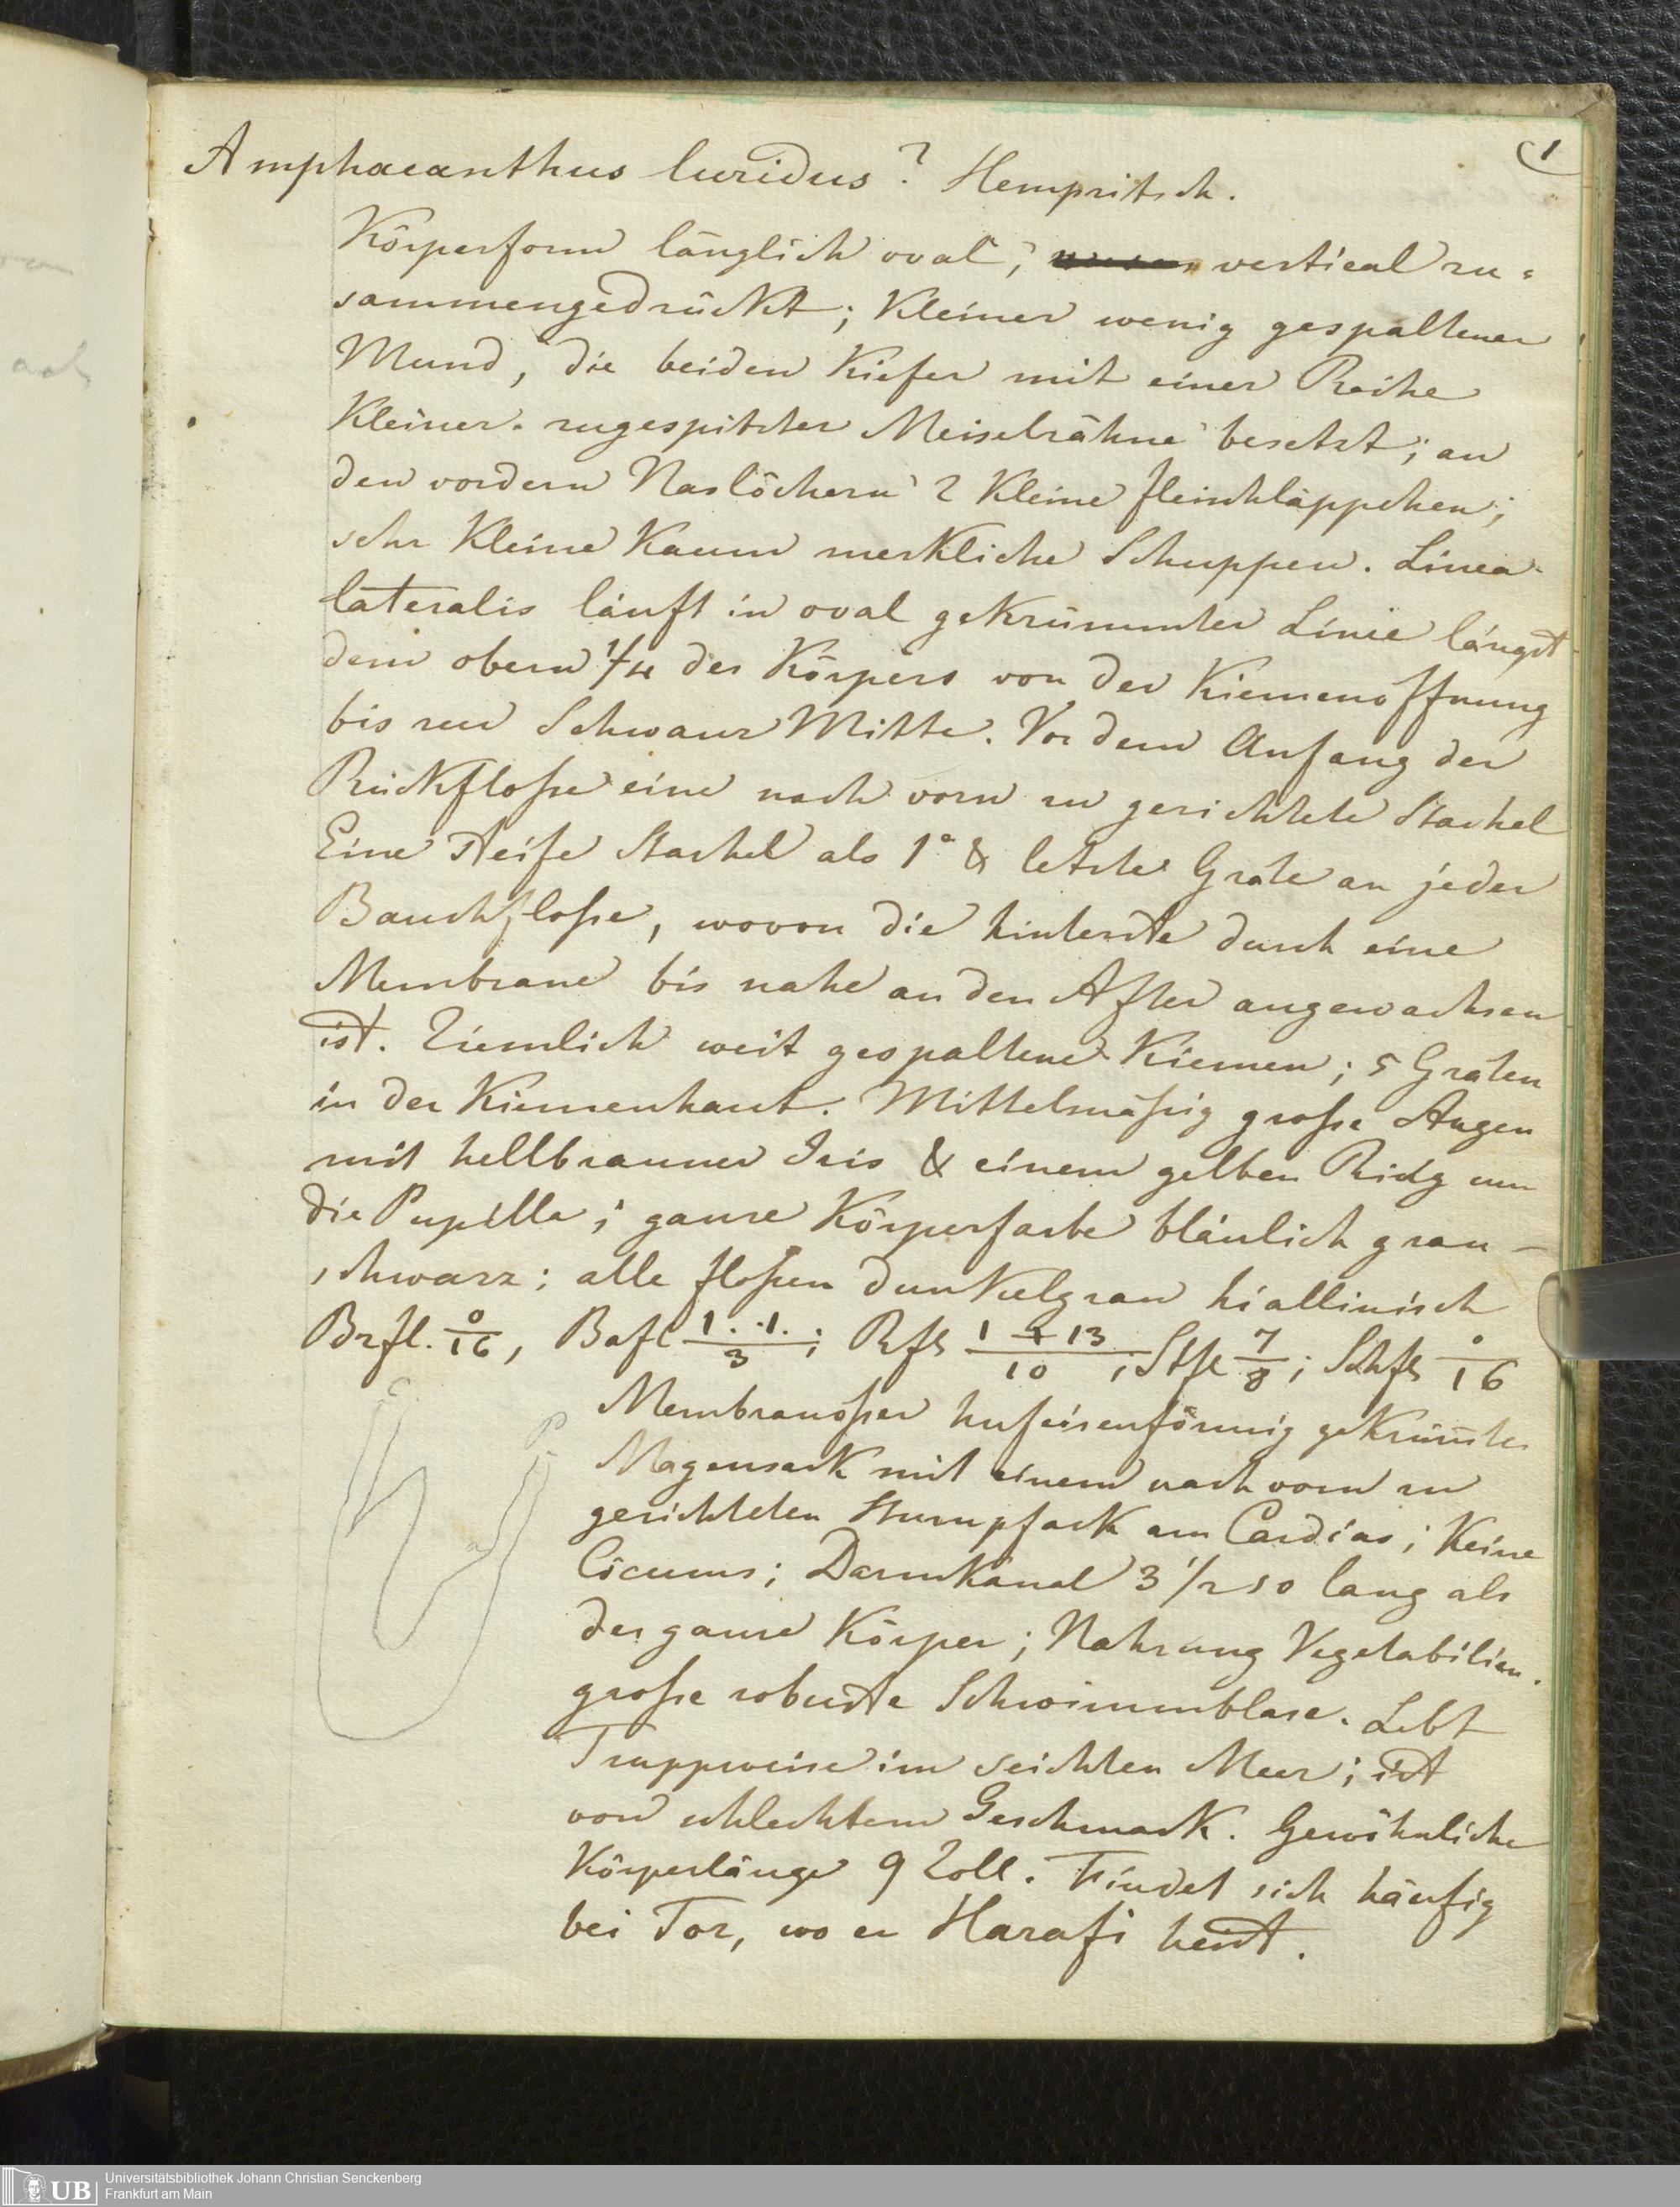 1
Amphacanthus luridus? Hempritsch.
Körperform länglich oval, vertical zu=
sammengedrückt; kleiner wenig gespaltener
Mund, die beiden Kiefer mit einer Reihe
kleiner zugespitzter Meiselzähne besetzt; an
den vordern Naslöchern 2 kleine fleischläppchen;
sehr kleine kaum merkliche Schuppen. Linea
lateralis läuft in oval gekrümmter Linie längst
dem obern 1/4 des Körpers von der Kiemenöffnung
bis zur Schwanz Mitte. Vor dem Anfang der
Rückfloße eine nach vorn zu gerichtete Stachel
Eine steife Stachel als 1° & letzte Gräte an jeder
Bauchfloße, wovon die hinterste durch eine
Membrane bis nahe an den After angewachsen
ist. Ziemlich weit gespaltene Kiemen; 5 Gräten
in der Kiemenhaut. Mittelmäßig große Augen
mit hellbrauner Iris & einem gelben Ring um
die Pupille; ganze Körperfarbe bläulich grau-
schwarz; alle floßen dunkelgrau hiallinisch
Brfl. 0/16, Bafl 1..1./3; Rfl 1 13/10; Stfl 7/8; Schfl 0/16
C
P
a
Membranoser hufeisenförmig gekrümter
Magensack mit einem nach vorn zu
gerichteten Stumpfsack am Cardias; keine
Cicums; Darmkanal 3 1/2 so lang als
der ganze Körper; Nahrung Vegetabilien.
große robuste Schwimmblase. Lebt
Truppweise im seichten Meer; ist
von schlechtem Geschmack. Gewöhnliche
Körperlänge 9 Zoll. Findet sich häufig
bei Tor, wo er Harafi heist.
ach
UB
Universitätsbibliothek Johann Christian Senckenberg
Frankfurt am Main